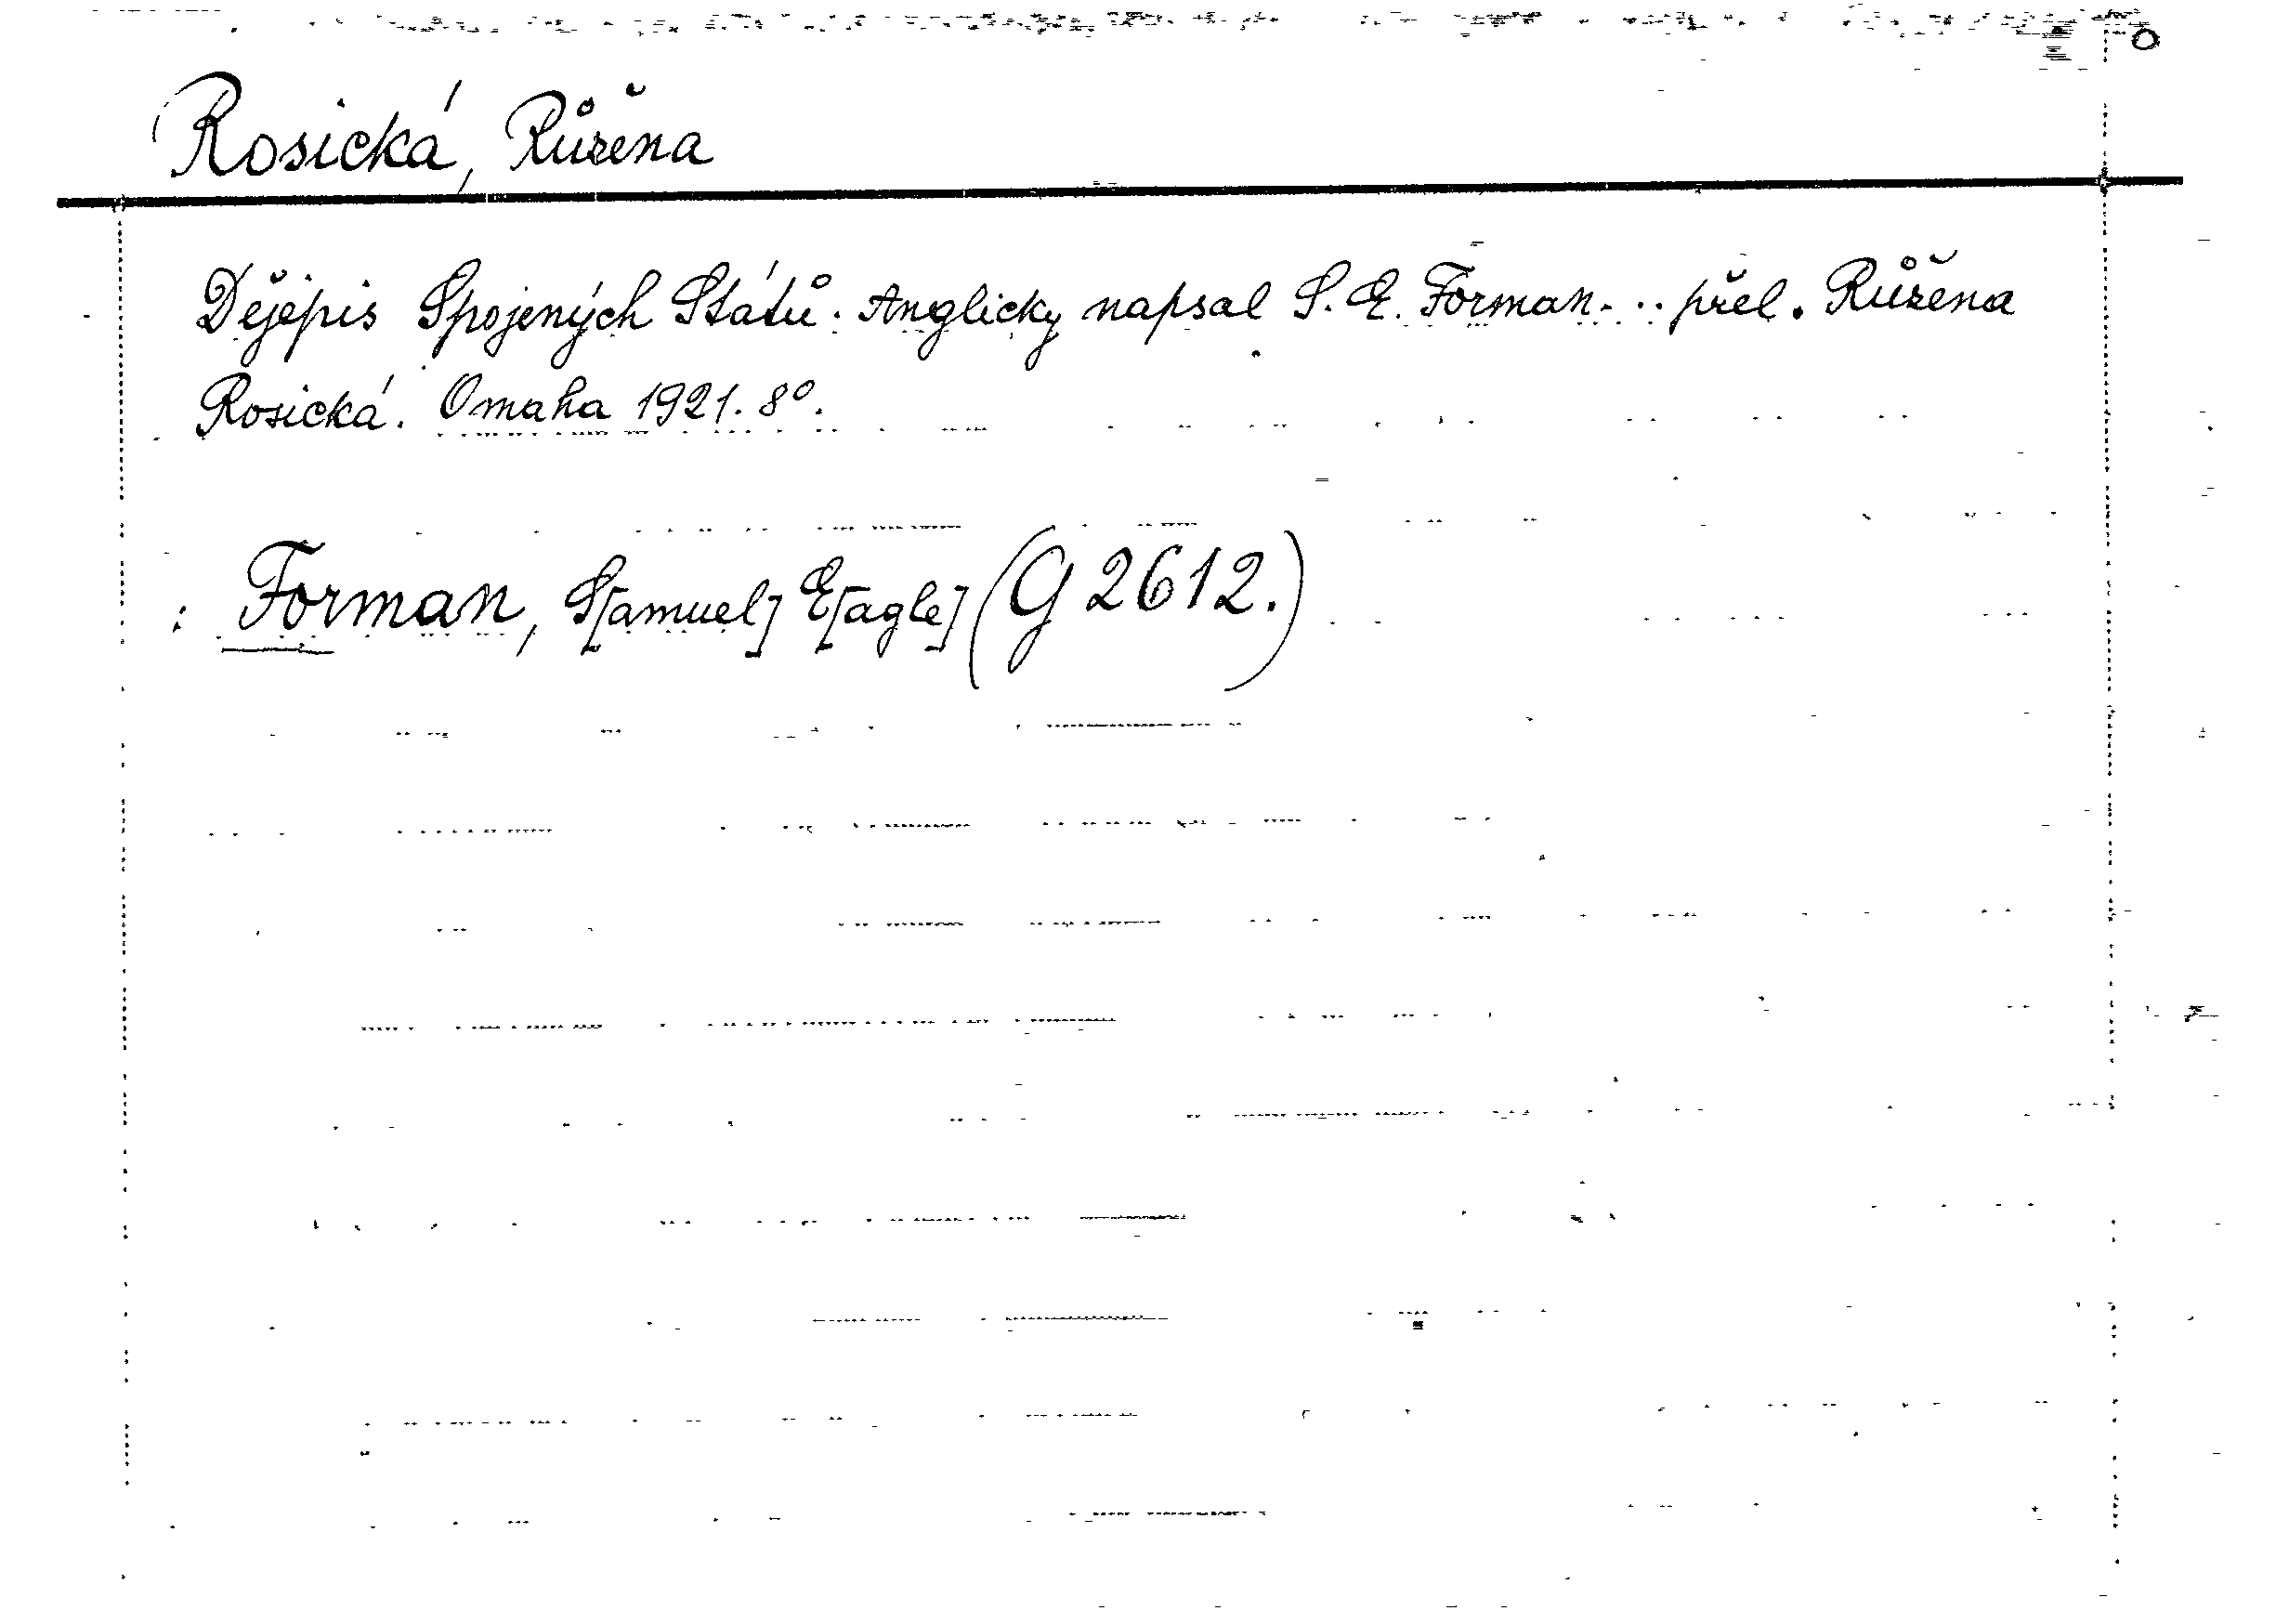 Rosická, Růžena
Dějepis Spojených Států. Anglicky napsal S. E. Forman... přel. Růžena
Rosická. Omaha 1921. 8°.
: Forman, S[amuel] E[agle] (G 2612.)